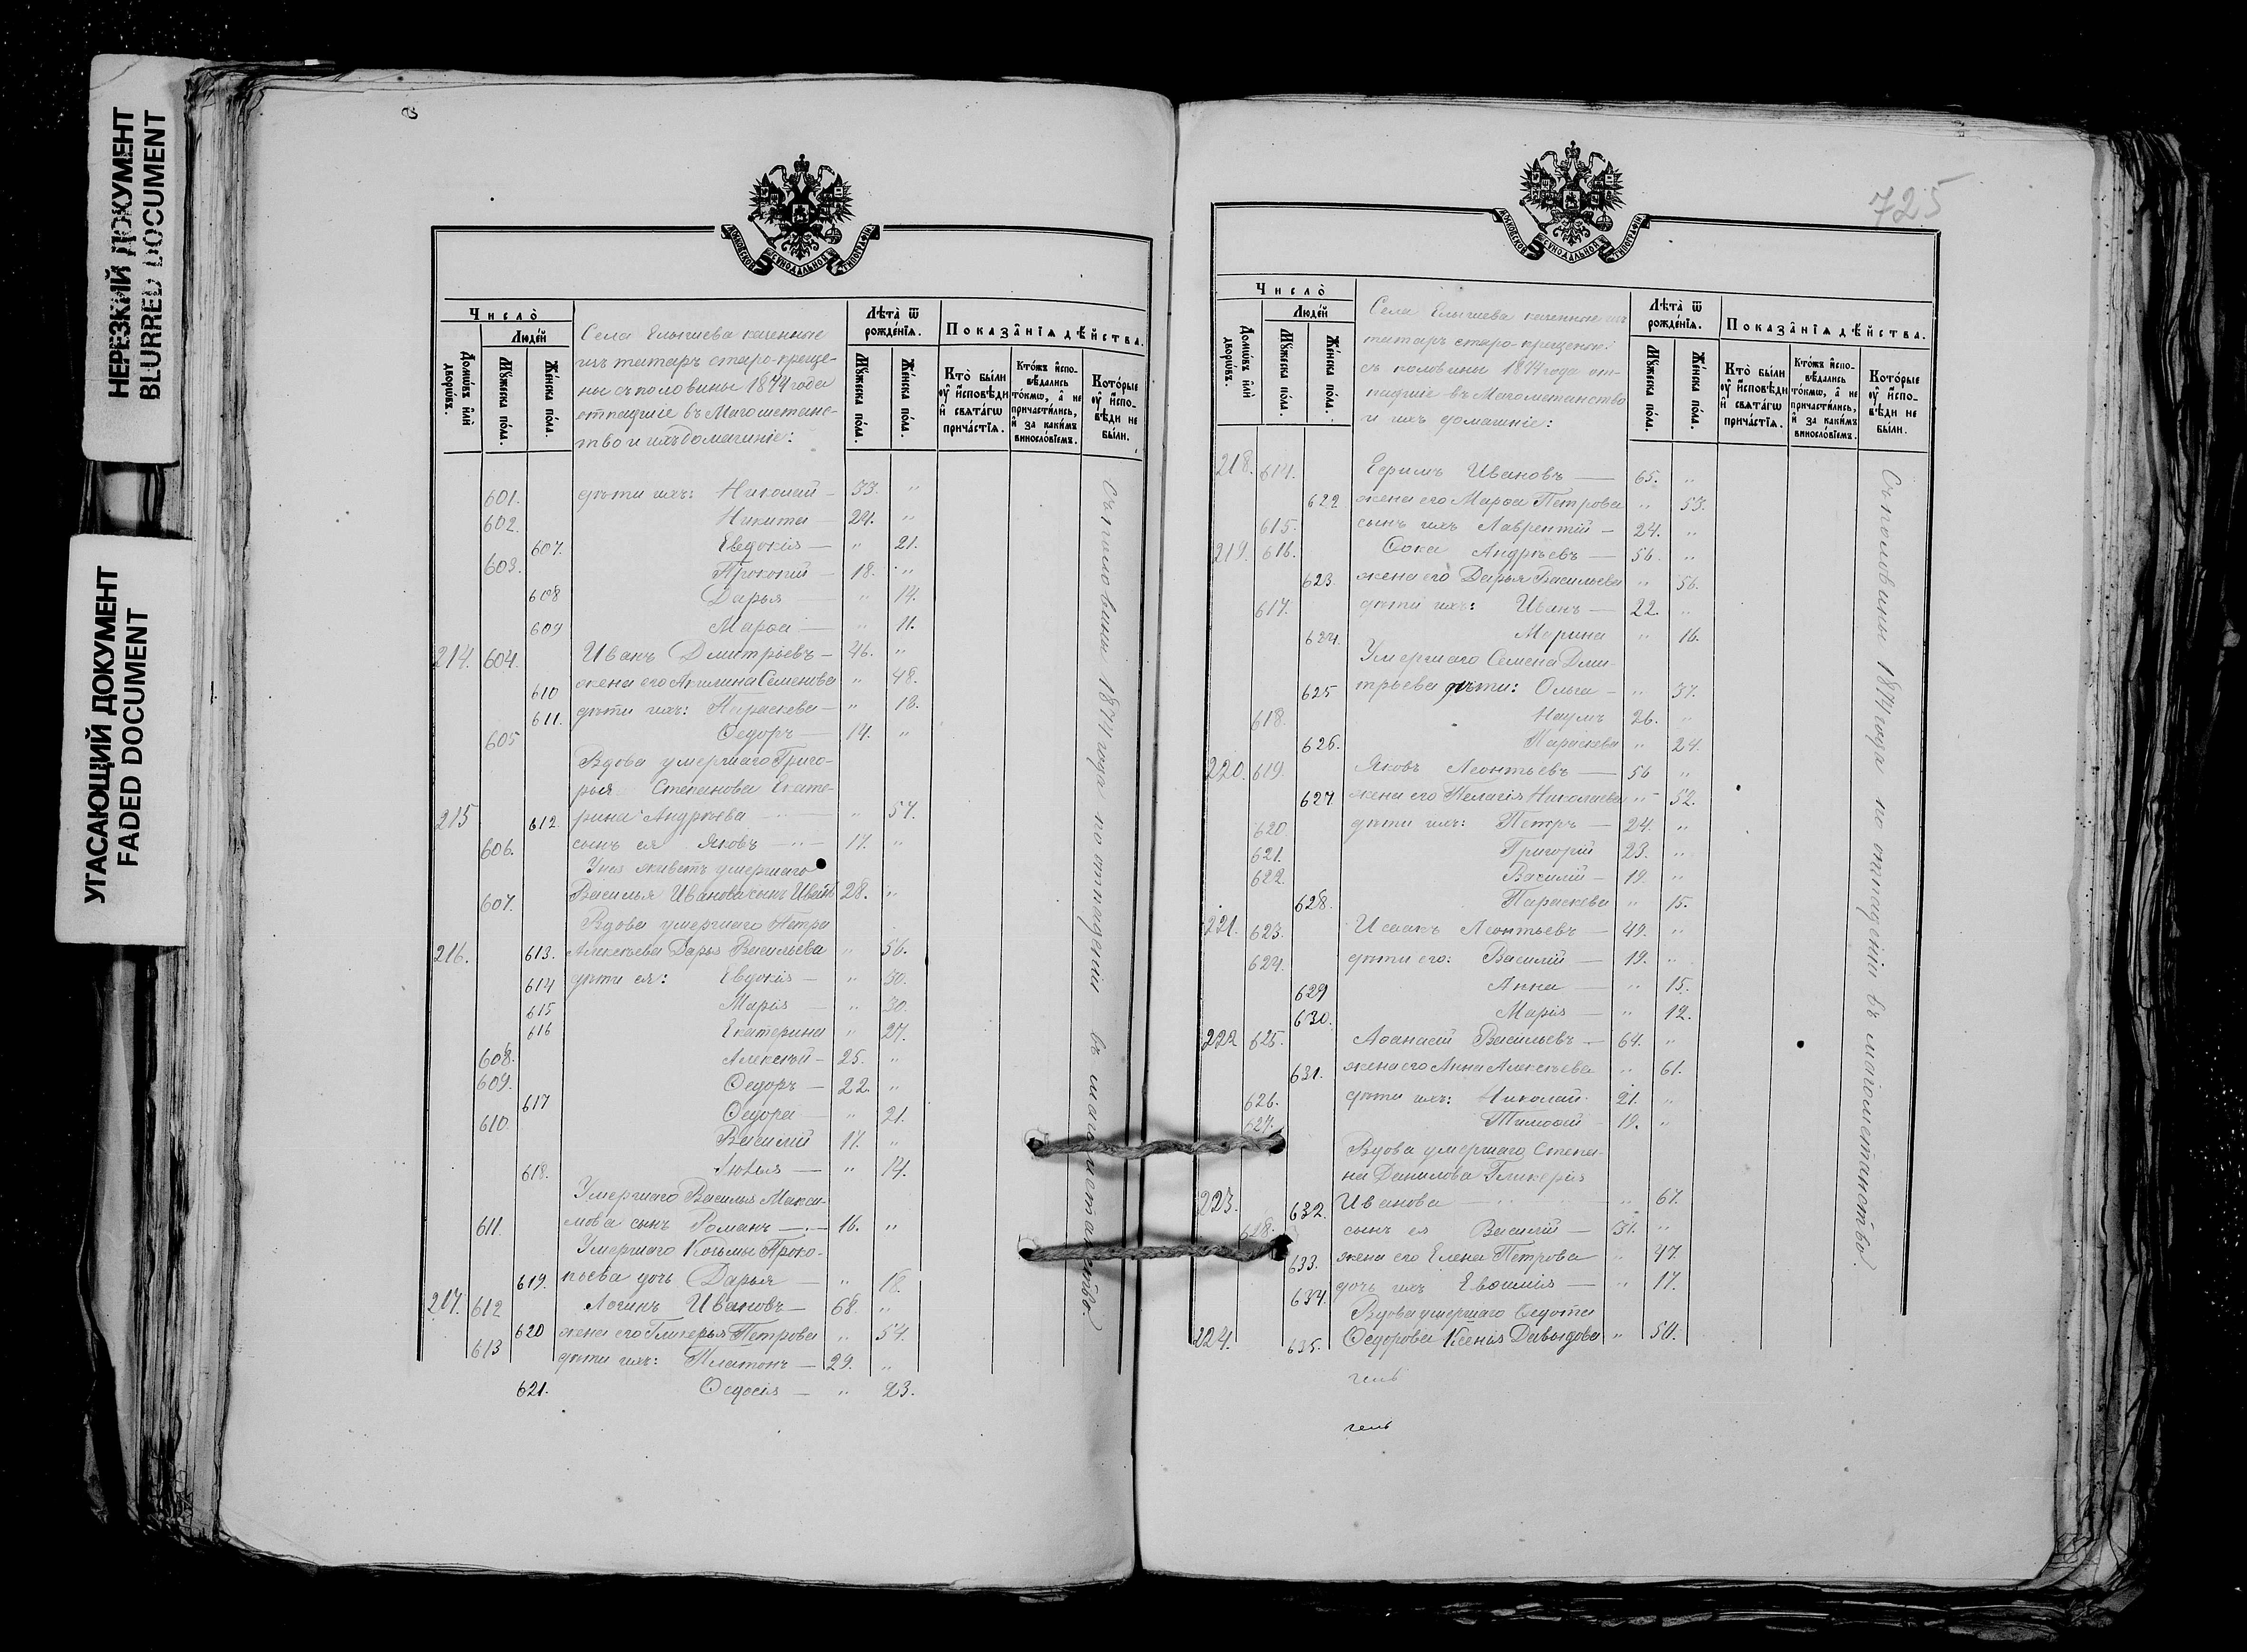 НЕРЕЗКИЙ ДОКУМЕНТ
BLURRED DOCUMENT
УГАСАЮЩИЙ ДОКУМЕНТ
FADED DOCUMENT
МОСКОВСКОЙ СѴНОДАЛЬНОЙ ТИПОГРАФІИ
Число̀
Людей
Домѡвъ или дворѡвъ.
Мꙋжеска пола.
Женска пола.
Села Елышева казенные
изъ татаръ старо-креще-
ны съ половины 1874 года
отпадшіе въ Магометанс-
тво и ихъ домашніе:
Лѣта ѿ рожденїѧ.
Мꙋжеска пола.
Женска пола.
Показанїѧ дѣйства.
Кто были ᲂу исповѣди и свѧтагѡ причастїѧ.
Ктожъ исповѣдались токмѡ, а не причастились, и за какимъ винословїемъ.
Которые ᲂу исповѣди не были.
601. дѣти ихъ: Николай — 33. "
602. Никита — 24. "
607. Евдокія — " 21.
603. Прокопій — 18. "
608 Дарья " 14.
609 Марѳа — " 11.
214. 604. Иванъ Дмитріевъ — 46. "
610 жена его Акилина Семенова " 48.
611. дѣти ихъ: Параскева — " 18.
605 Ѳедоръ — 14. "
Вдова умершаго Григо-
рья Степанова Екате-
215 612. рина Андреева — " 57.
606. сынъ ея Яковъ — 17. "
У нея живетъ умершаго
607. Василья Иванова сынъ 28. "
Вдова умершаго Петра
216. 613. Алексѣева Дарья Васильева " 56.
614 дѣти ея: Евдокія — " 30.
615 Марія — " 30.
616 Екатерина " 27.
608. Алексѣй — 25. "
609. Ѳедоръ — 22. "
617 Ѳедора — " 21.
610. Василій 17. "
618. — " 14.
Умершаго Василья Макси-
611. мова сынъ Романъ — 16. "
Умершаго Козьмы Проко-
619. пьева дочь Дарья — " 18.
217. 612 Логинъ Ивановъ — 68. "
620 жена его Гликерья Петрова " 54.
613 дѣти ихъ: Платонъ — 29. "
621. Ѳедосія — " 23.
Съ половины 1874 года по отпаденіи въ магометанство.
725
МОСКОВСКОЙ СѴНОДАЛЬНОЙ ТИПОГРАФІИ
Число̀
Людей
Домѡвъ или дворѡвъ.
Мꙋжеска пола.
Женска пола.
Села Елышева казенные изъ
татаръ старо-крещены
съ половины 1874 года от-
падшіе въ Магометанство
и ихъ домашніе:
Лѣта ѿ рожденїѧ.
Мꙋжеска пола.
Женска пола.
Показанїѧ дѣйства.
Кто были ᲂу исповѣди и свѧтагѡ причастїѧ.
Ктожъ исповѣдались токмѡ, а не причастились, и за какимъ винословїемъ.
Которые ᲂу исповѣди не были.
218. 614. Ефимъ Ивановъ — 65. "
622 жена его Марѳа Петрова " 53.
615. сынъ ихъ Лаврентій — 24. "
219. 616. Ѳока Андреевъ — 56. "
623. жена его Дарья Васильева " 56.
617. дѣти ихъ: Иванъ — 22. "
624. Марина " 16.
Умершаго Семена Дми-
625 тріева дѣти: Ольга — " 37.
618. Наумъ 26. "
626. Параскева " 24.
220. 619. Яковъ Леонтьевъ — 56 "
627 жена его Пелагія Николаева " 52.
620 дѣти ихъ: Петръ — 24. "
621. Григорій 23. "
622. Василій — 19. "
628. Параскева " 15.
221. 623. Исаакъ Леонтьевъ — 49. "
624. дѣти его: Василій — 19. "
629 Анна — " 15.
630. Марія — " 12.
222 625. Аѳанасій Васильевъ — 64. "
631. жена его Анна Алексѣева " 61.
626. дѣти ихъ: Николай 21. "
627. Тимоѳей — 19. "
Вдова умершаго Степа-
на Данилова Гликерія
223. 632. Иванова " 67.
628. сынъ ея Василій — 31. "
633. жена его Елена Петрова " 47.
634. дочь ихъ Евѳимія — " 17.
Вдова умершаго Ѳедота
224. 635. Ѳедорова Ксенія Давыдова " 50.
Съ половины 1874 года по отпаденіи въ магометанство.